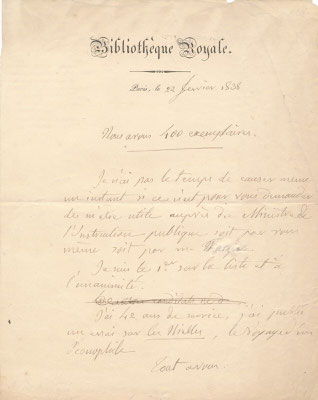 Bibliothèque Royale.
Paris, le 22 février 1838
Nous avons 400 exemplaires.
Je n'ai pas le temps de causer même
un instant si ce n'est pour vous demander
de m'être utile auprès du Ministre de
l'Instruction publique soit par vous
même soit par un
Je suis le 1er sur la liste et à
l'unanimité.
candidats
J'ai 42 ans de service, j'ai publié
un essai sur les Nielles, le voyage d'un
Iconophile
Tout à vous.